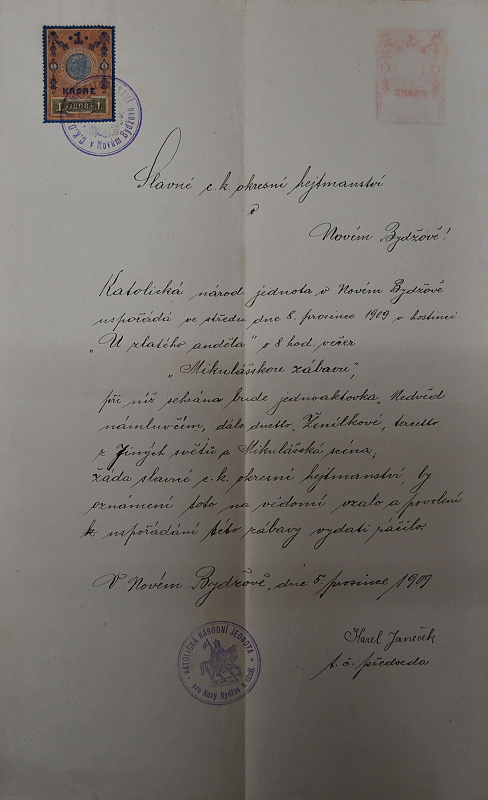 1
KRONE
1 1898 1
v Novém Bydžově
Slavné c. k. okresní hejtmanství
v
Novém Bydžově!
Katolická národ. jednota v Novém Bydžově
uspořádá ve středu dne 8. prosince 1909 v hostinci
„U zlatého anděla" o 8 hod. večer
„Mikulášskou zábavu",
při níž sehrána bude jednoaktovka „Medvěd
námluvčím, dále duetto „Ženílkové, tercetto
z Jiných světů a Mikulášská scéna;
žádá slavné c. k. okresní hejtmanství, by
oznámení toto na vědomí vzalo a povolení
k uspořádání této zábavy vydati ráčilo.
V Novém Bydžově, dne 5. prosince 1909
Karel Janeček
t. č. předseda
KATOLICKÁ NÁRODNÍ JEDNOTA
pro Nový Bydžov a okolí